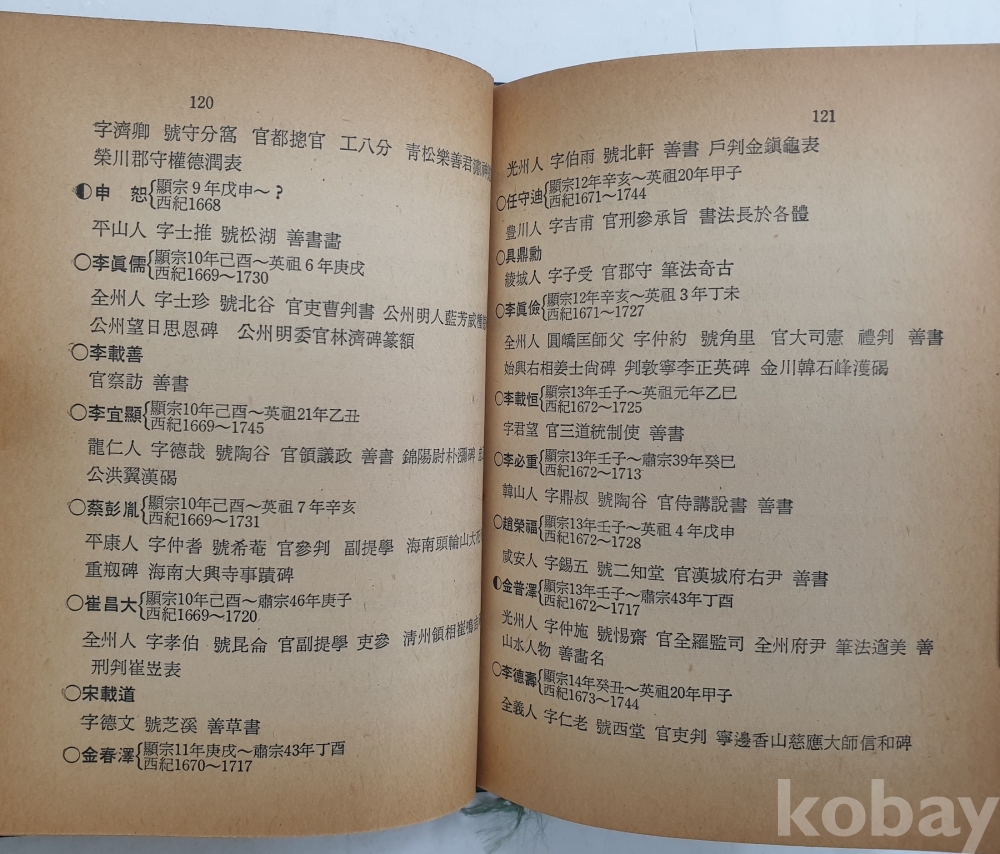 120
字濟卿 號守分窩 官都摠官 工八分 靑松樂善君
榮川郡守權德潤表
◐申 恕{顯宗9年戊申～?
西紀1668
平山人 字士推 號松湖 善書畵
○李眞儒{顯宗10年己酉～英祖6年庚戌
西紀1669～1730
全州人 字士珍 號北谷 官吏曹判書 公州明人藍芳威
公州望日思恩碑 公州明委官林濟碑篆額
○李載善
官察訪 善書
○李宜顯{顯宗10年己酉～英祖21年乙丑
西紀1669～1745
龍仁人 字德哉 號陶谷 官領議政 善書 錦陽尉朴瀰碑
公洪翼漢碣
○蔡彭胤{顯宗10年己酉～英祖7年辛亥
西紀1669～1731
平康人 字仲耆 號希菴 官參判 副提學 海南頭輪山大
重剏碑 海南大興寺事蹟碑
○崔昌大{顯宗10年己酉～肅宗46年庚子
西紀1669～1720
全州人 字孝伯 號昆侖 官副提學 吏參 淸州領相崔鳴吉
刑判崔岦表
○宋載道
字德文 號芝溪 善草書
○金春澤{顯宗11年庚戌～肅宗43年丁酉
西紀1670～1717
121
光州人 字伯雨 號北軒 善書 戶判金鎭龜表
○任守迪{顯宗12年辛亥～英祖20年甲子
西紀1671～1744
豊川人 字吉甫 官刑參承旨 書法長於各體
○具鼎勳
綾城人 字子受 官郡守 筆法奇古
○李眞儉{顯宗12年辛亥～英祖3年丁未
西紀1671～1727
全州人 圓嶠匡師父 字仲約 號角里 官大司憲 禮判 善書
始興右相姜士尙碑 判敦寧李正英碑 金川韓石峰濩碣
○李載恒{顯宗13年壬子～英祖元年乙巳
西紀1672～1725
字君望 官三道統制使 善書
○李必重{顯宗13年壬子～肅宗39年癸巳
西紀1672～1713
韓山人 字鼎叔 號陶谷 官侍講說書 善書
○趙榮福{顯宗13年壬子～英祖4年戊申
西紀1672～1728
咸安人 字錫五 號二知堂 官漢城府右尹 善書
◐金普澤{顯宗13年壬子～肅宗43年丁酉
西紀1672～1717
光州人 字仲施 號惕齋 官全羅監司 全州府尹 筆法遒美 善
山水人物 善畵名
○李德壽{顯宗14年癸丑～英祖20年甲子
西紀1673～1744
全義人 字仁老 號西堂 官吏判 寧邊香山慈應大師信和碑
kobay